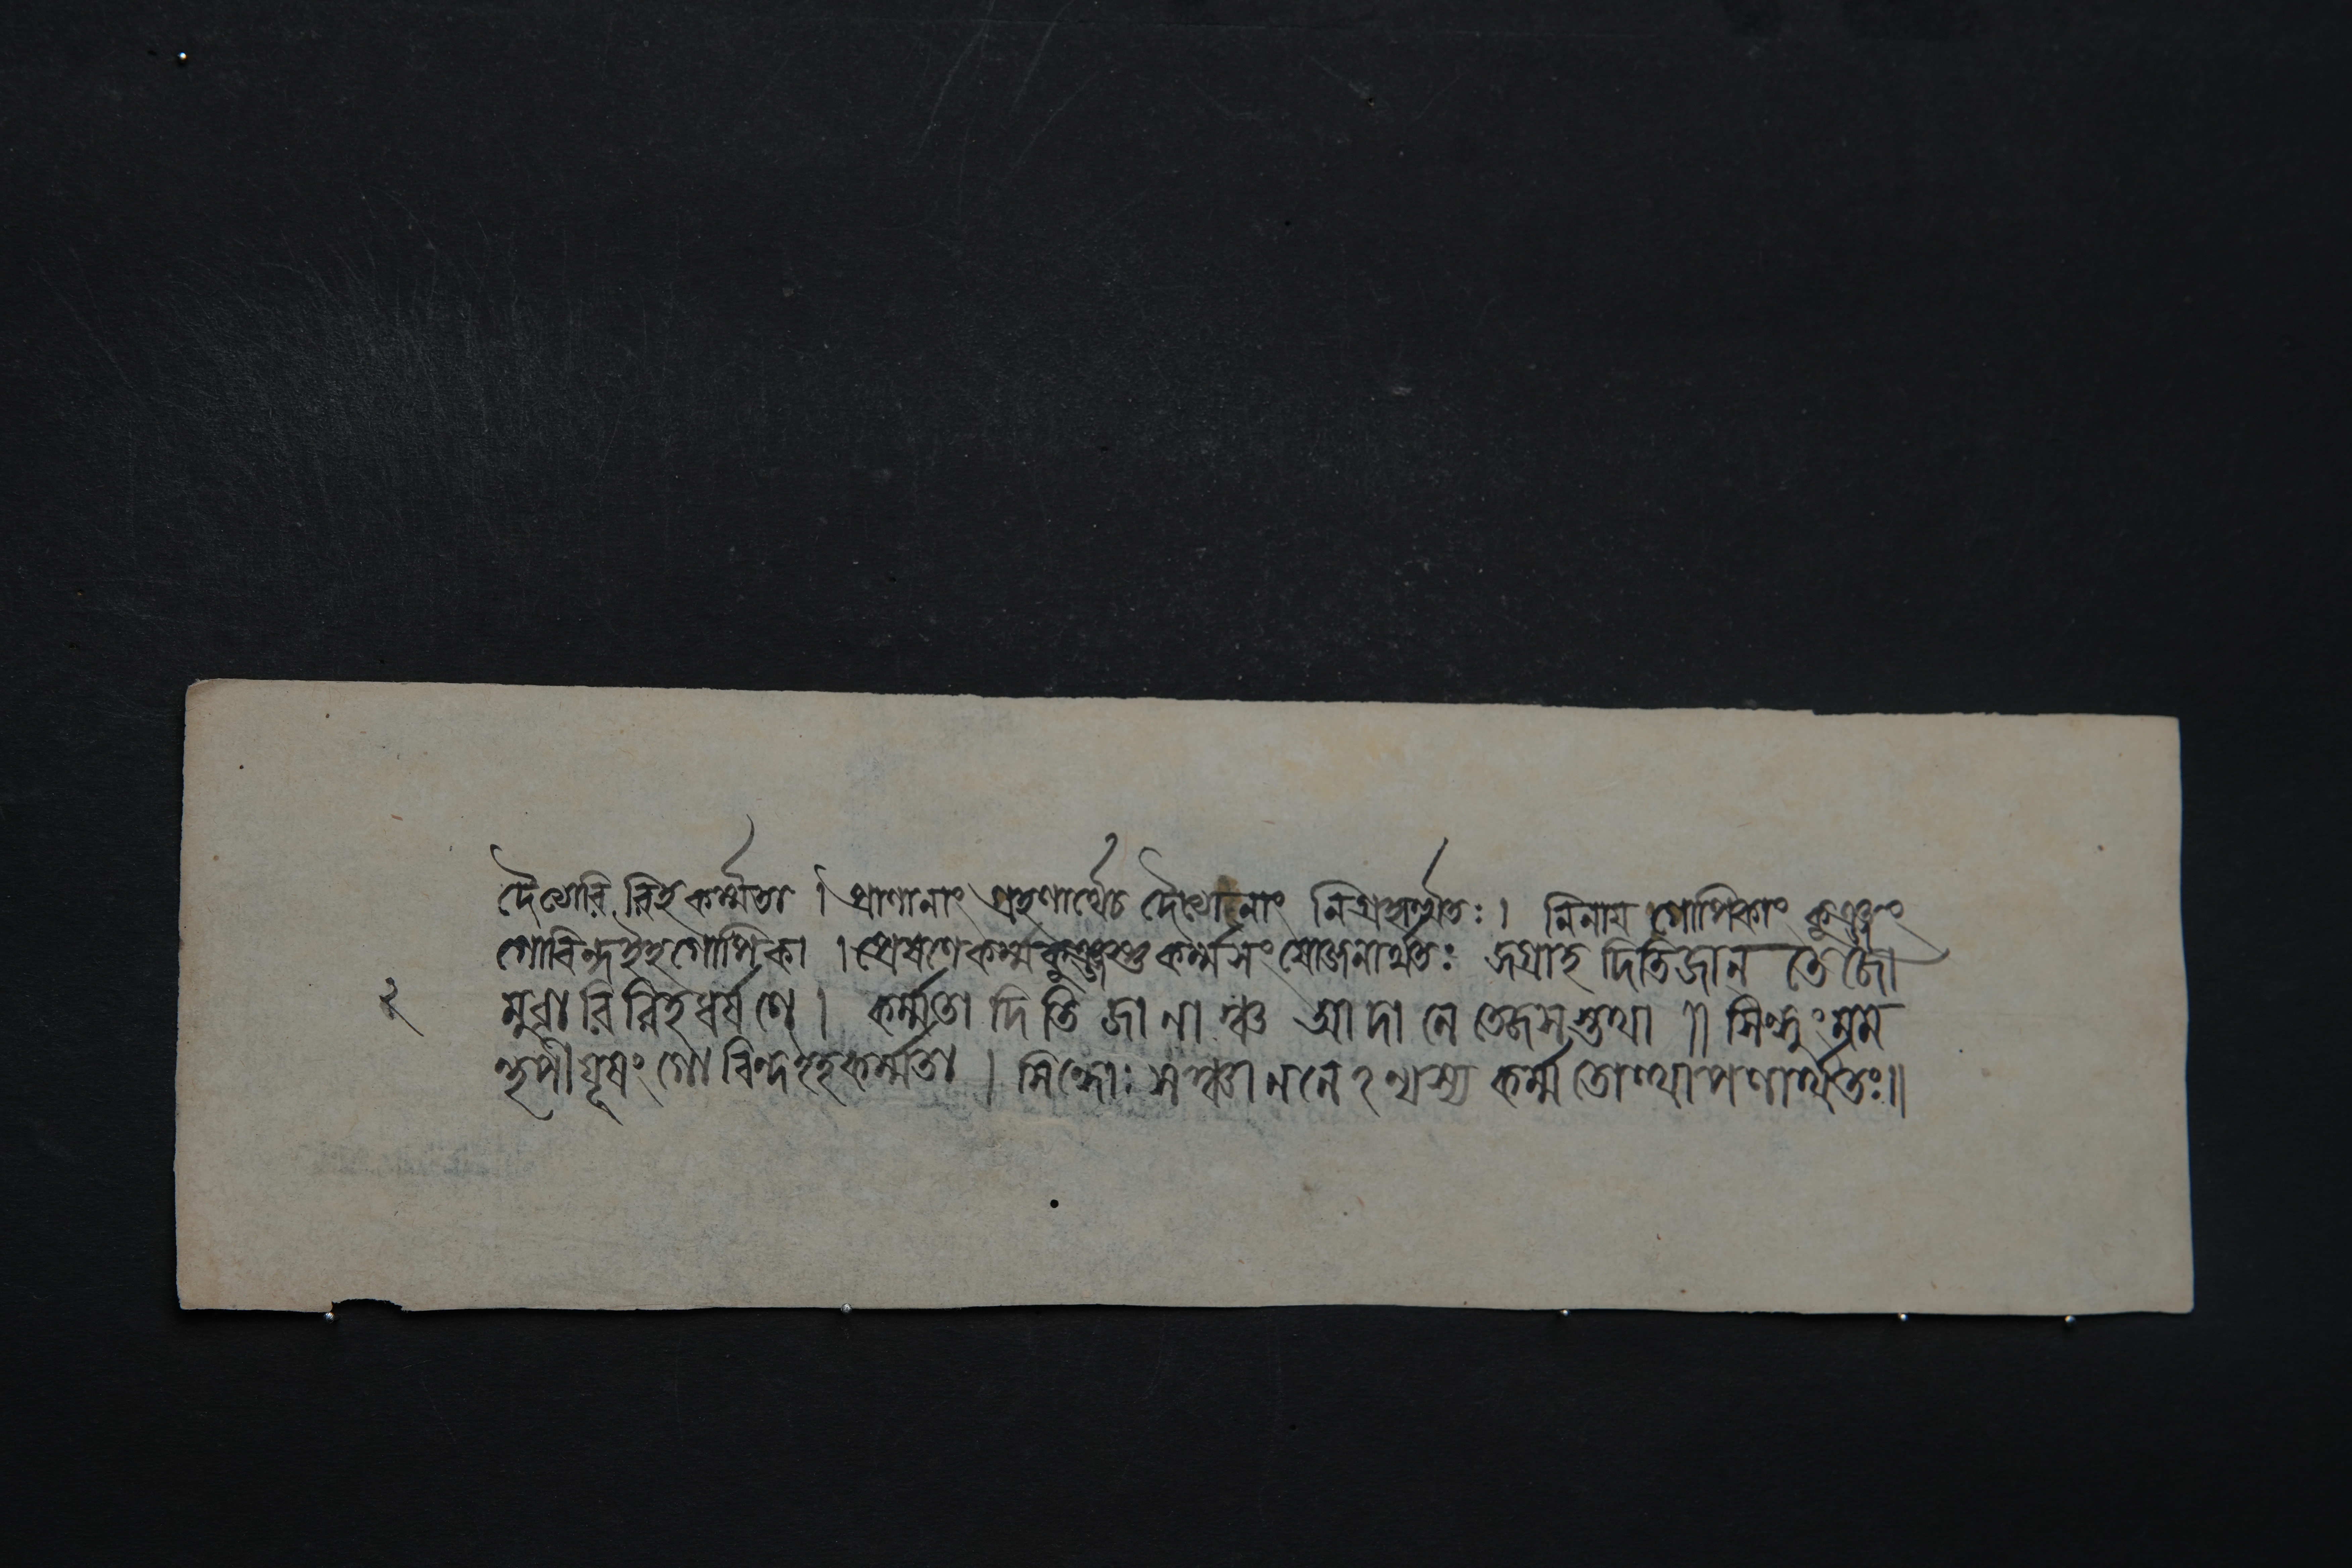 দৈত্যোরি রিহকর্ম্মতা । প্রাণানাং গ্রহণার্থেচ দৈত্যানাং নিগ্রহার্থতঃ । নিনায় গোপিকাং কুঞ্জং
গোবিন্দইহগোপিকা । প্রেষণেকর্ম্মকুঞ্জস্তুকর্ম্মসংযোজনার্থতঃ জগ্রাহ দিতিজান তেজো
২ মুরারিরিহধর্ষণে । কর্ম্মতা দিতিজানাঞ্চ আদানে তেজসস্তুথা ॥ সিন্ধুং মম
ন্থপীযূষং গোবিন্দইহকর্ম্মতা । সিন্ধোঃ সঞ্চাননেঽন্থস্য কর্ম্মতোত্থাপণার্থতঃ॥